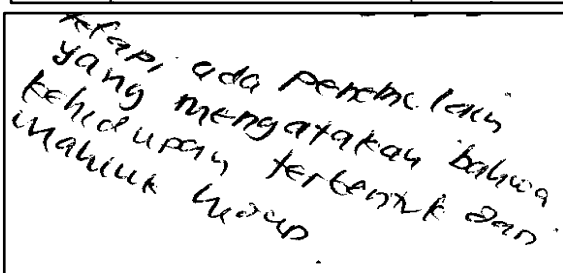 tetapi ada peneliti lain
yang mengatakan bahwa
kehidupan terbentuk dari
mahluk hidup.